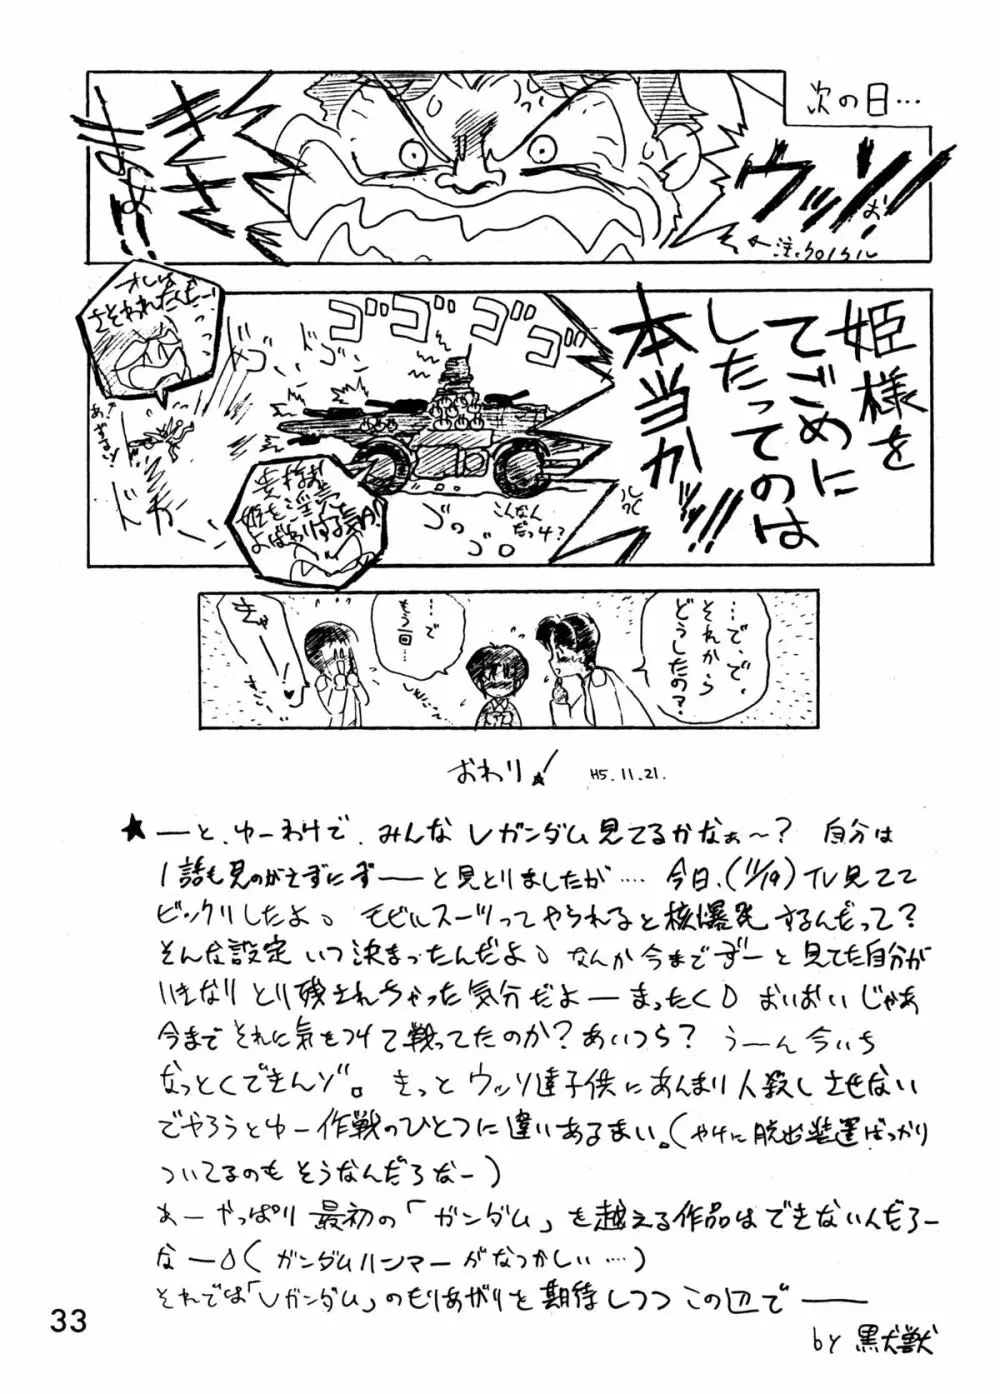 次の日…
ウッソぉ
きさまぁ!!
←注:クロノクル
姫様を
てごめに
したってのは
本当か!!!
ゴゴゴゴ
オレは
さそわれたんだー!
ドゴ
ドカ
ゴゴゴ
こんなん
だっけ?
…で、で、
それから
どうしたの?
…で
もう一回…
きゃー!♥
おわり! H5.11.21.
★ーと、ゆーわけで、みんなVガンダム見てるかなぁ〜? 自分は
1話も見のがさずにずーーと見とりましたが…. 今日、(11/19)TV見てて
ビックリしたよ。モビルスーツってやられると核爆発するんだって?
そんな設定いつ決まったんだよ。なんか今までずーと見てた自分が
いきなりとり残されちゃった気分だよーまったく。おいおいじゃあ
今までそれに気をつけて戦ってたのか?あいつら? うーん今いち
なっとくできんゾ。きっとウッソ達子供にあんまり人殺しさせない
でやろうとゆー作戦のひとつに違いあるまい。(やけに脱出装置ばっかり
ついてるのもそうなんだろなー)
あーやっぱり最初の「ガンダム」を越える作品はできないんだろー
なー。(ガンダムハンマーがなつかしい…)
それでは「Vガンダム」のもりあがりを期待しつつこの辺でーー
by 黒犬獣
33